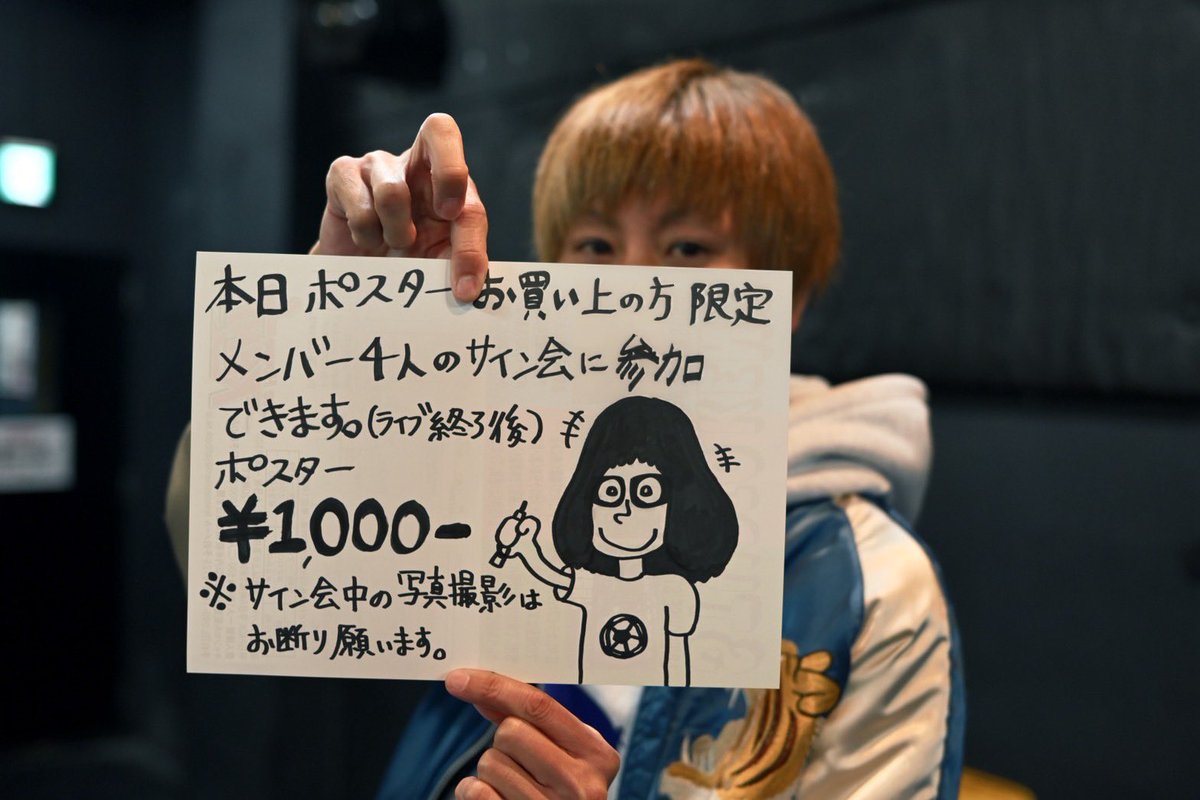 本日ポスターお買い上の方限定
メンバー4人のサイン会に参加
できます。(ライブ終了後)
ポスター
¥1,000-
※サイン会中の写真撮影は
お断り願います。